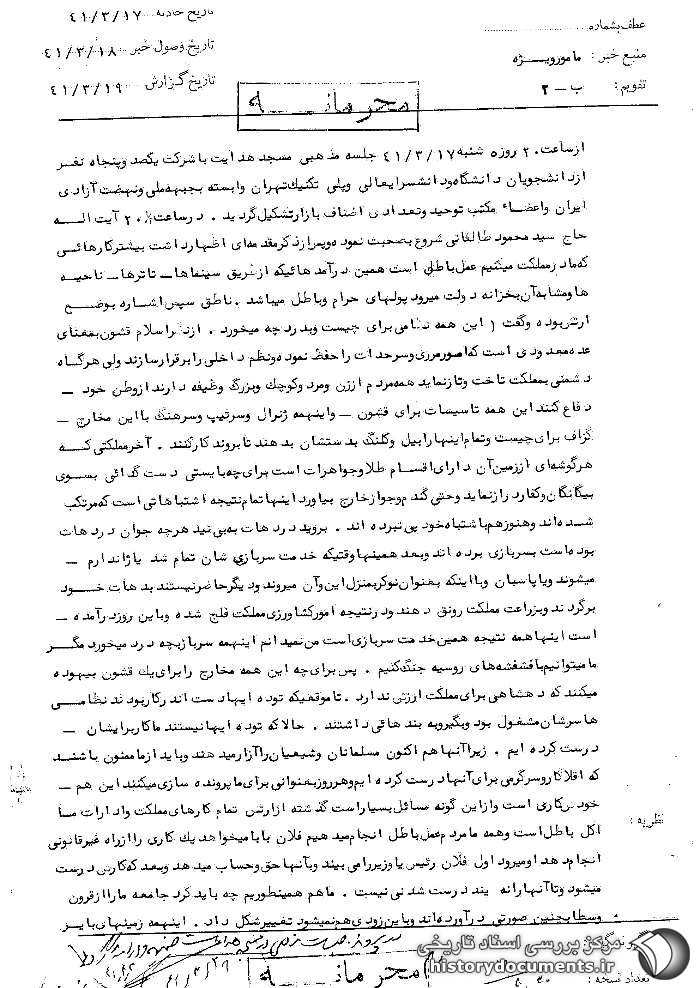 عطف بشماره
منبع خبر : مامورویـــژه
تقویم : ب ـ ۲
تاریخ حادثه ۴۱/۳/۱۷
تاریخ وصول خبر ۴۱/۳/۱۸
تاریخ گزارش ۴۱/۳/۱۹
محرمانـــه
ازساعت ۲۰ روزه شنبه ۴۱/۳/۱۷ جلسه مذهبی مسجد هدایت با شرکت یکصد وپنجاه نفر
ازدانشجویان دانشگاه ودانشسرایعالی وپلی تکنیک تهران وابسته بجبهه ملی ونهضت آزادی
ایران واعضاء مکتب توحید وتعدادی اصناف بازارتشکیل گردید . درساعت ۲۰ آیت الــه
حاج سید محمود طالقانی شروع بصحبت نموده وپس ازذکرمقدمه ای اظهارداشت بیشترکارهائـی
که مادرمملکت میکنیم عمل باطل است همین درآمدهائیکه ازطریق سینماها ـ تاترها ـ ناحیــه
هاومشابه آن بخزانه دولت میرود پولهای حرام وباطل میباشد . ناطق سپس اشاره بوضــع
ارتش بوده وگفت ( این همه نظامی برای چیست وبدرد چه میخورد . ازنظراسلام قشون بمعنای
عده معدودی است که امورمرزی وسرحدات را حفظ نموده ونظم داخلی رابرقرارسازند ولی هرگاه
دشمنی بمملکت تاخت وتازنماید همه مردم اززن ومرد وکوچک وبزرگ وظیفه دارند ازوطن خود ـ
دفاع کنند این همه تاسیسات برای قشون ـ واینهمه ژنرال وسرتیپ وسرهنگ بااین مخارج ـ
گزاف برای چیست وتمام اینهارابیل وکلنگ بدستشان بدهند تابروند کارکنند . آخرمملکتی کــه
هرگوشه ای اززمین آن دارای اقسام طلاوجواهرات است برای چه بایستی دست گدائی بسـوی
بیگانگان وکفار درازنماید وحتی گندم وجوازخارج بیاورد اینهاتمام نتیجه اشتباهاتی است که مرتکب
شــده اند وهنوزهم باشتباه خود پی نبرده اند . بروید دردهات به بینید هرچه جوان دردهات
بوده است بسربازی برده اند وبعد همینهاوقتیکه خدمت سربازی شان تمام شد یاژاندارم ـ
میشوند ویاپاسبان ویااینکه بعنوان نوکربمنزل این وآن میروند ودیگرحاضرنیستند بدهات خــود
برگردند وبزراعت مملکت رونق دهند ودرنتیجه امورکشاورزی مملکت فلج شده وباین روزدرآمده ـ
است اینهاهمه نتیجه همین خدمت سربازی است من نمیدانم اینهمه سربازبچه درد میخورد مگـر
مامیتوانیم بافشفشه های روسیه جنگ کنیم . پس برای چه این همه مخارج رابرای یک قشون بیهوده
میکنند که دهشاهی برای مملکت ارزش ندارد . تاموقعیکه توده ایهادست اندرکاربودند نظامــی
هاسرشان مشغول بود وبگیروبه بندهائی داشتند . حالاکه توده ایهانیستند ماکاربرایشان ـ
درست کرده ایم . زیراآنهاهم اکنون مسلمانان وشیعیان راآزارمیدهند وباید ازماممنون باشنــد
که اقلاکاروسرگرمی برای آنهادرست کرده ایم وهرروزبعنوانی برای ماپرونده سازی میکنند این هم ـ
خودش کاری است وازاین گونه مسائل بسیاراست گذشته ازارتش تمام کارهای مملکت وادارات مــا
اکل باطل است وهمه مامردم عمل باطل انجام میدهیم فلان بابامیخواهد یک کاری راازراه غیرقانونی
انجام دهد اومیرود اول فلان رئیس یاوزیررامی بیند وبآنهاحق وحساب میدهد وبعد که کارش درست
میشود وتاآنهارانه بیند درست شدنی نیست . ماهم همینطوریم چه باید کرد جامعه ماراازقرون
وسطابچنین صورتی درآورده اند وباین زودی هم نمیشود تغییرشکل داد . اینهمه زمینهای بایـر
نظریه :
محرمانـــه
تعداد نسخه :
مرکز بررسی اسناد تاریخی
historydocuments.ir